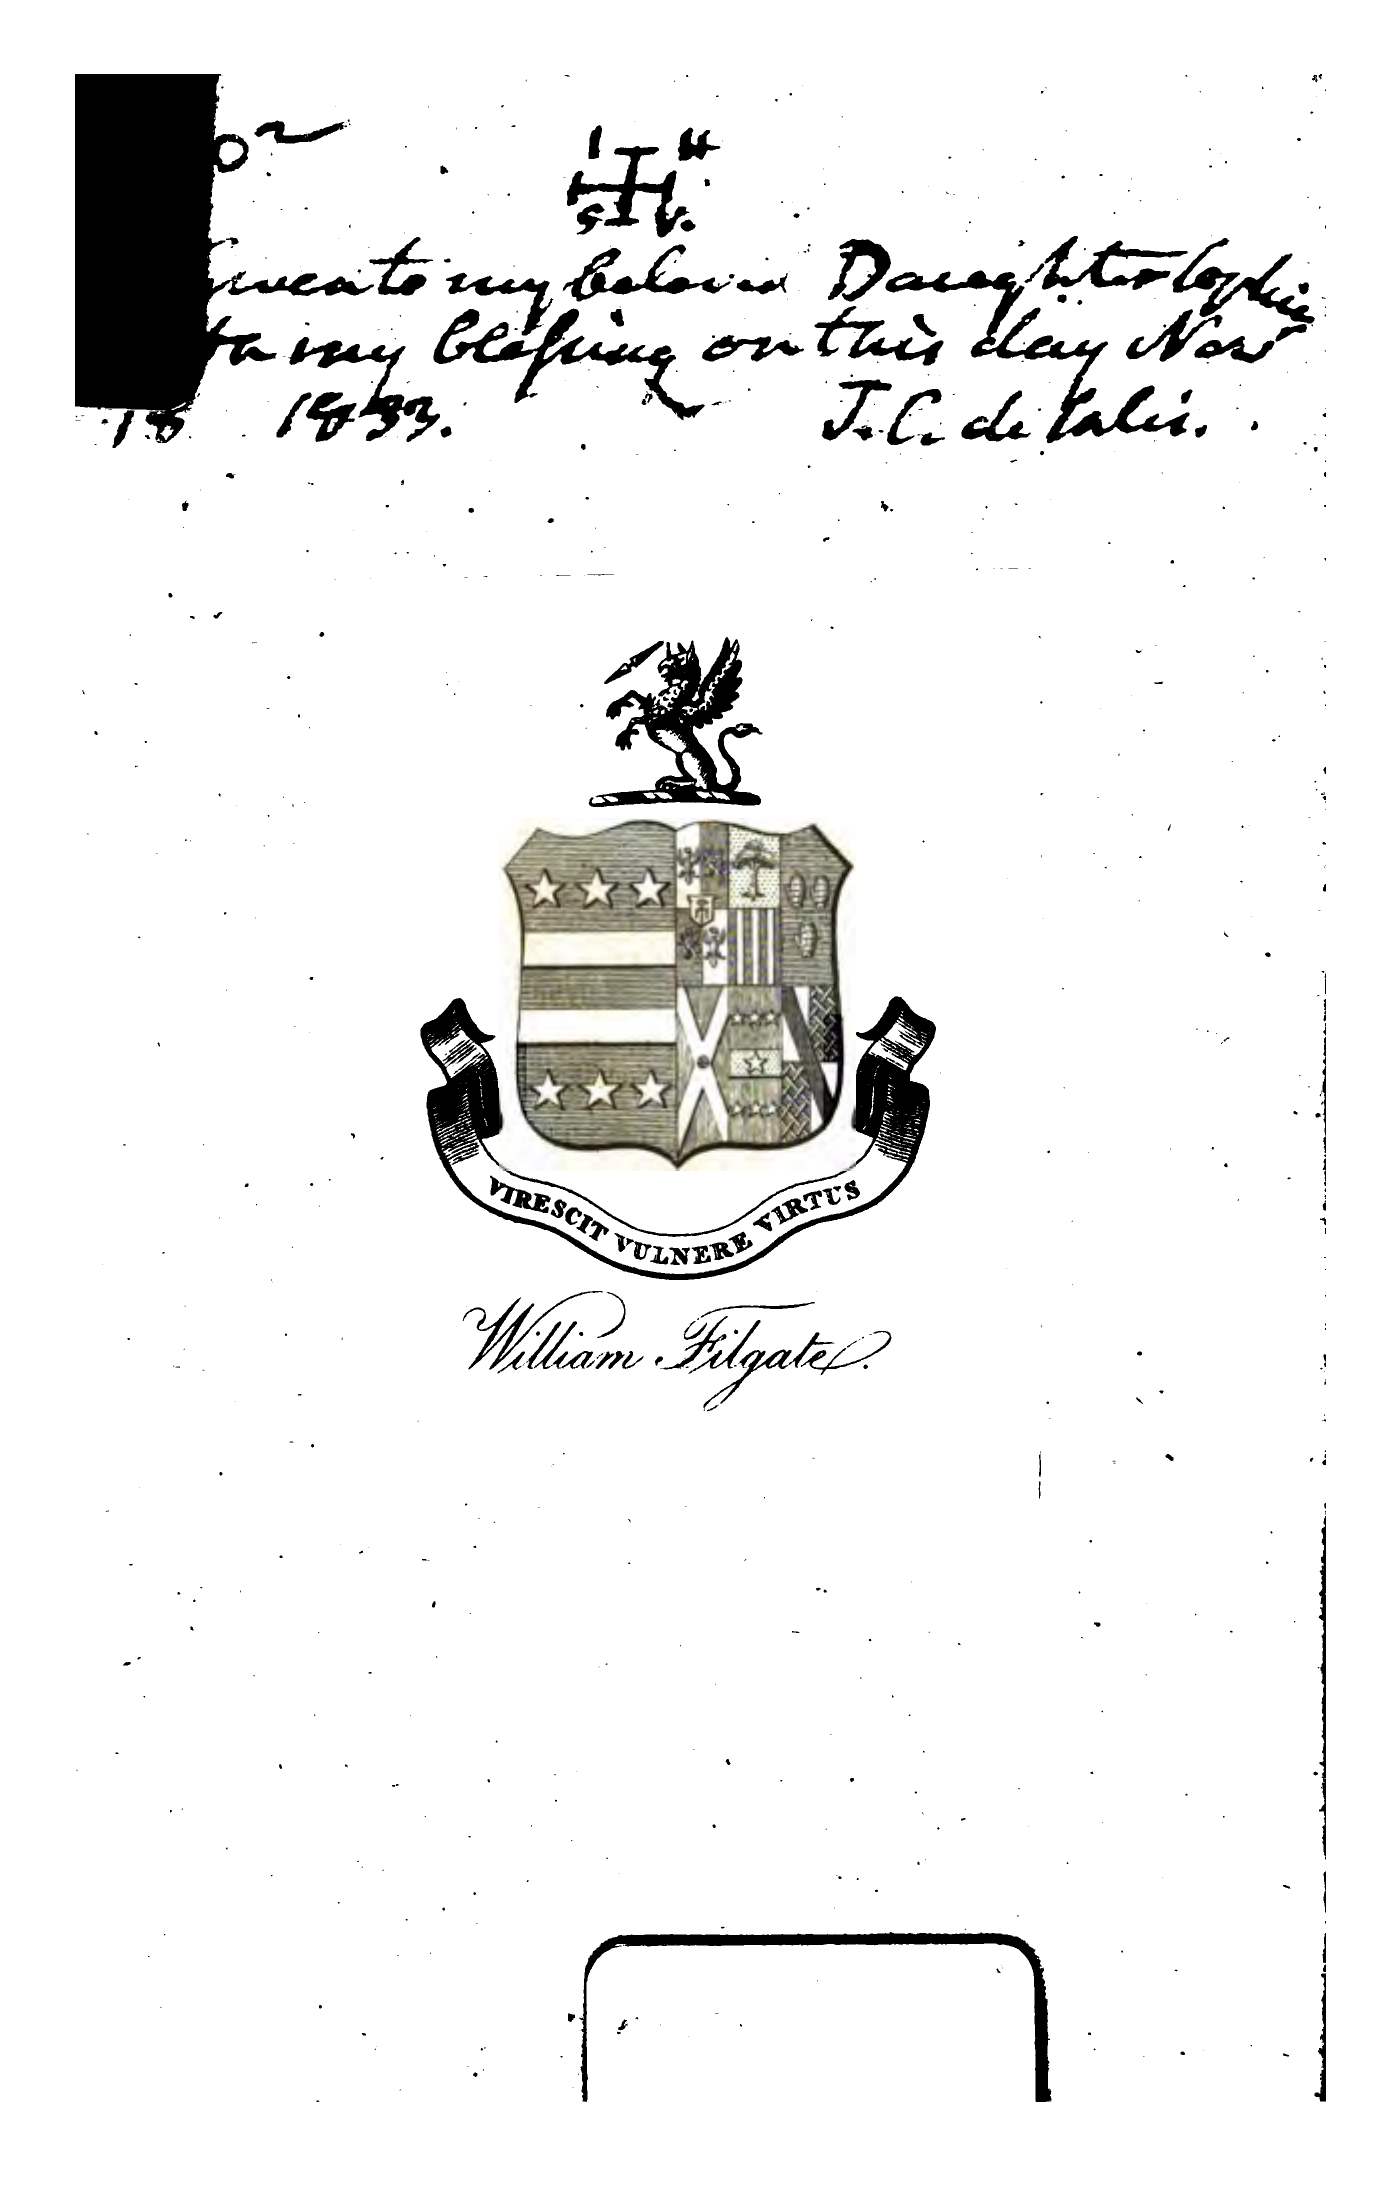 I H
S V.
to my beloved Daughter Sophie
my blessing on this day Nov
18 1833. J. C. de
VIRESCIT VULNERE VIRTUS
William Filgate.